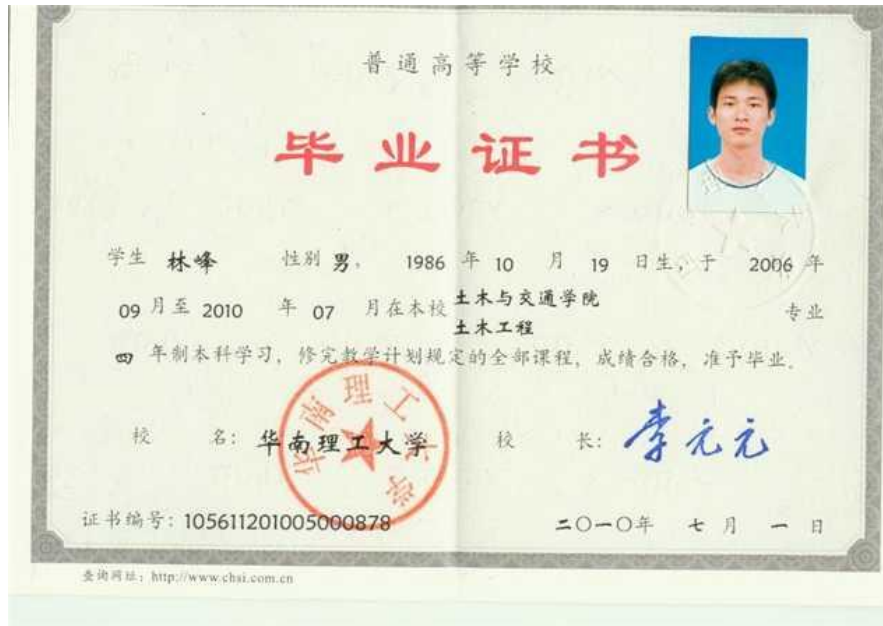 普通高等学校
毕业证书
学生 林峰 性别 男, 1986 年 10 月 19 日生,于 2006 年
09 月至 2010 年 07 月在本校 土木与交通学院 土木工程 专业
四 年制本科学习,修完教学计划规定的全部课程,成绩合格,准予毕业.
校 名: 华南理工大学 校 长: 李元元
华南理工大学
证书编号: 105611201005000878 二〇一〇年 七 月 一 日
查询网址: http://www.chsi.com.cn